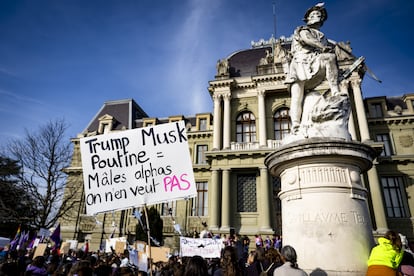 Trump Musk
Poutine =
Mâles alphas
on n'en veut PAS
GUILLAUME TELL